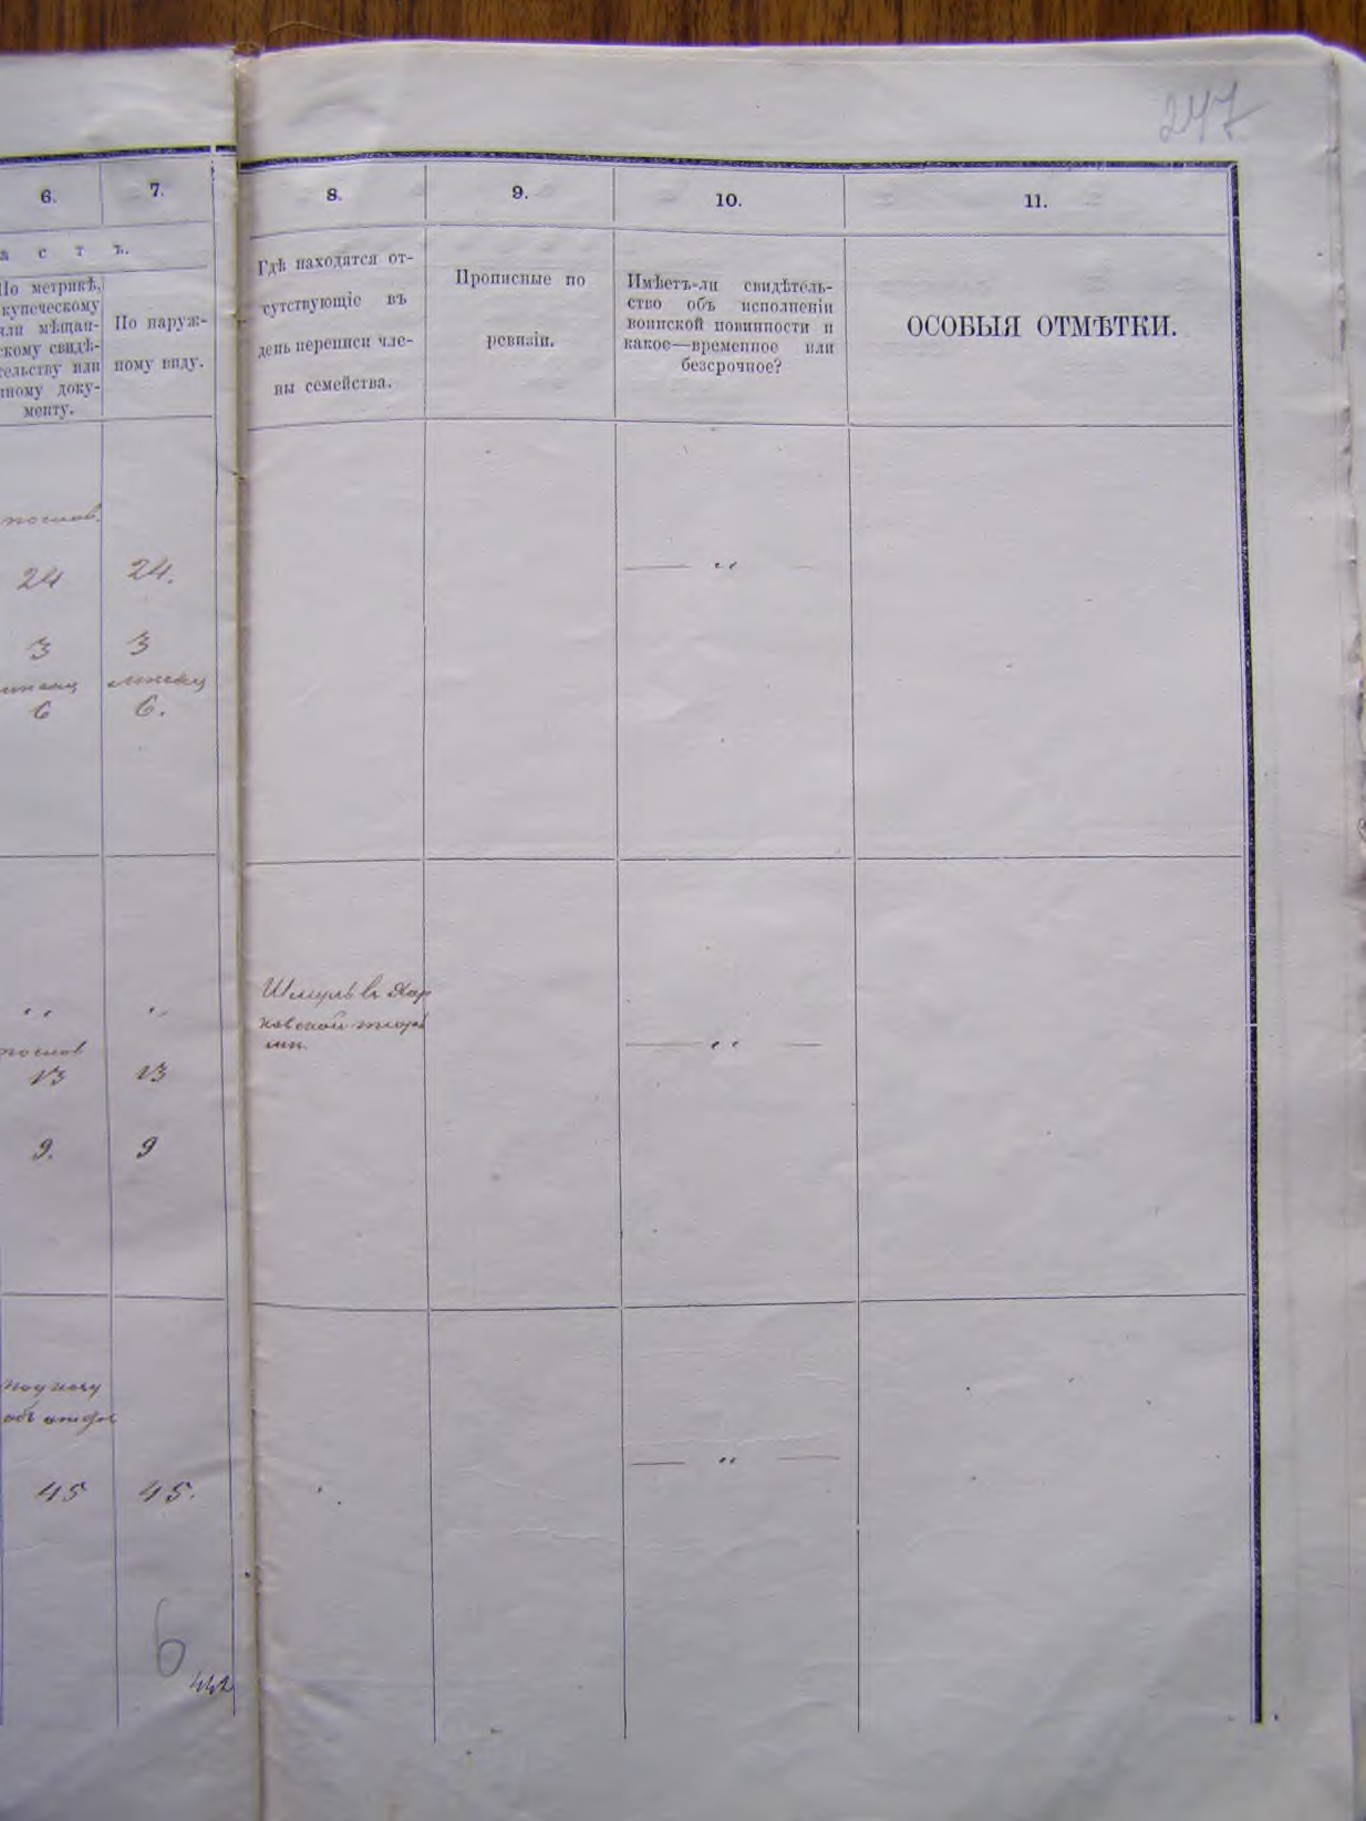 247
6.
7.
8.
9.
10.
11.
а с т ъ.
По метрикѣ,
купеческому
или мѣщан-
скому свидѣ-
тельству или
иному доку-
менту.
По наруж-
ному виду.
Гдѣ находятся от-
сутствующіе въ
день переписи чле-
ны семейства.
Прописные по
ревизіи.
Имѣетъ-ли свидѣтель-
ство объ исполненіи
воинской повинности и
какое—временное или
безсрочное?
ОСОБЫЯ ОТМѢТКИ.
послов.
24 24. — „ —
3 3
6 6.
„ „
Шмуль въ Хар
ковской
— „ —
послов
13 13
9. 9
— „ —
45 45.
6
442